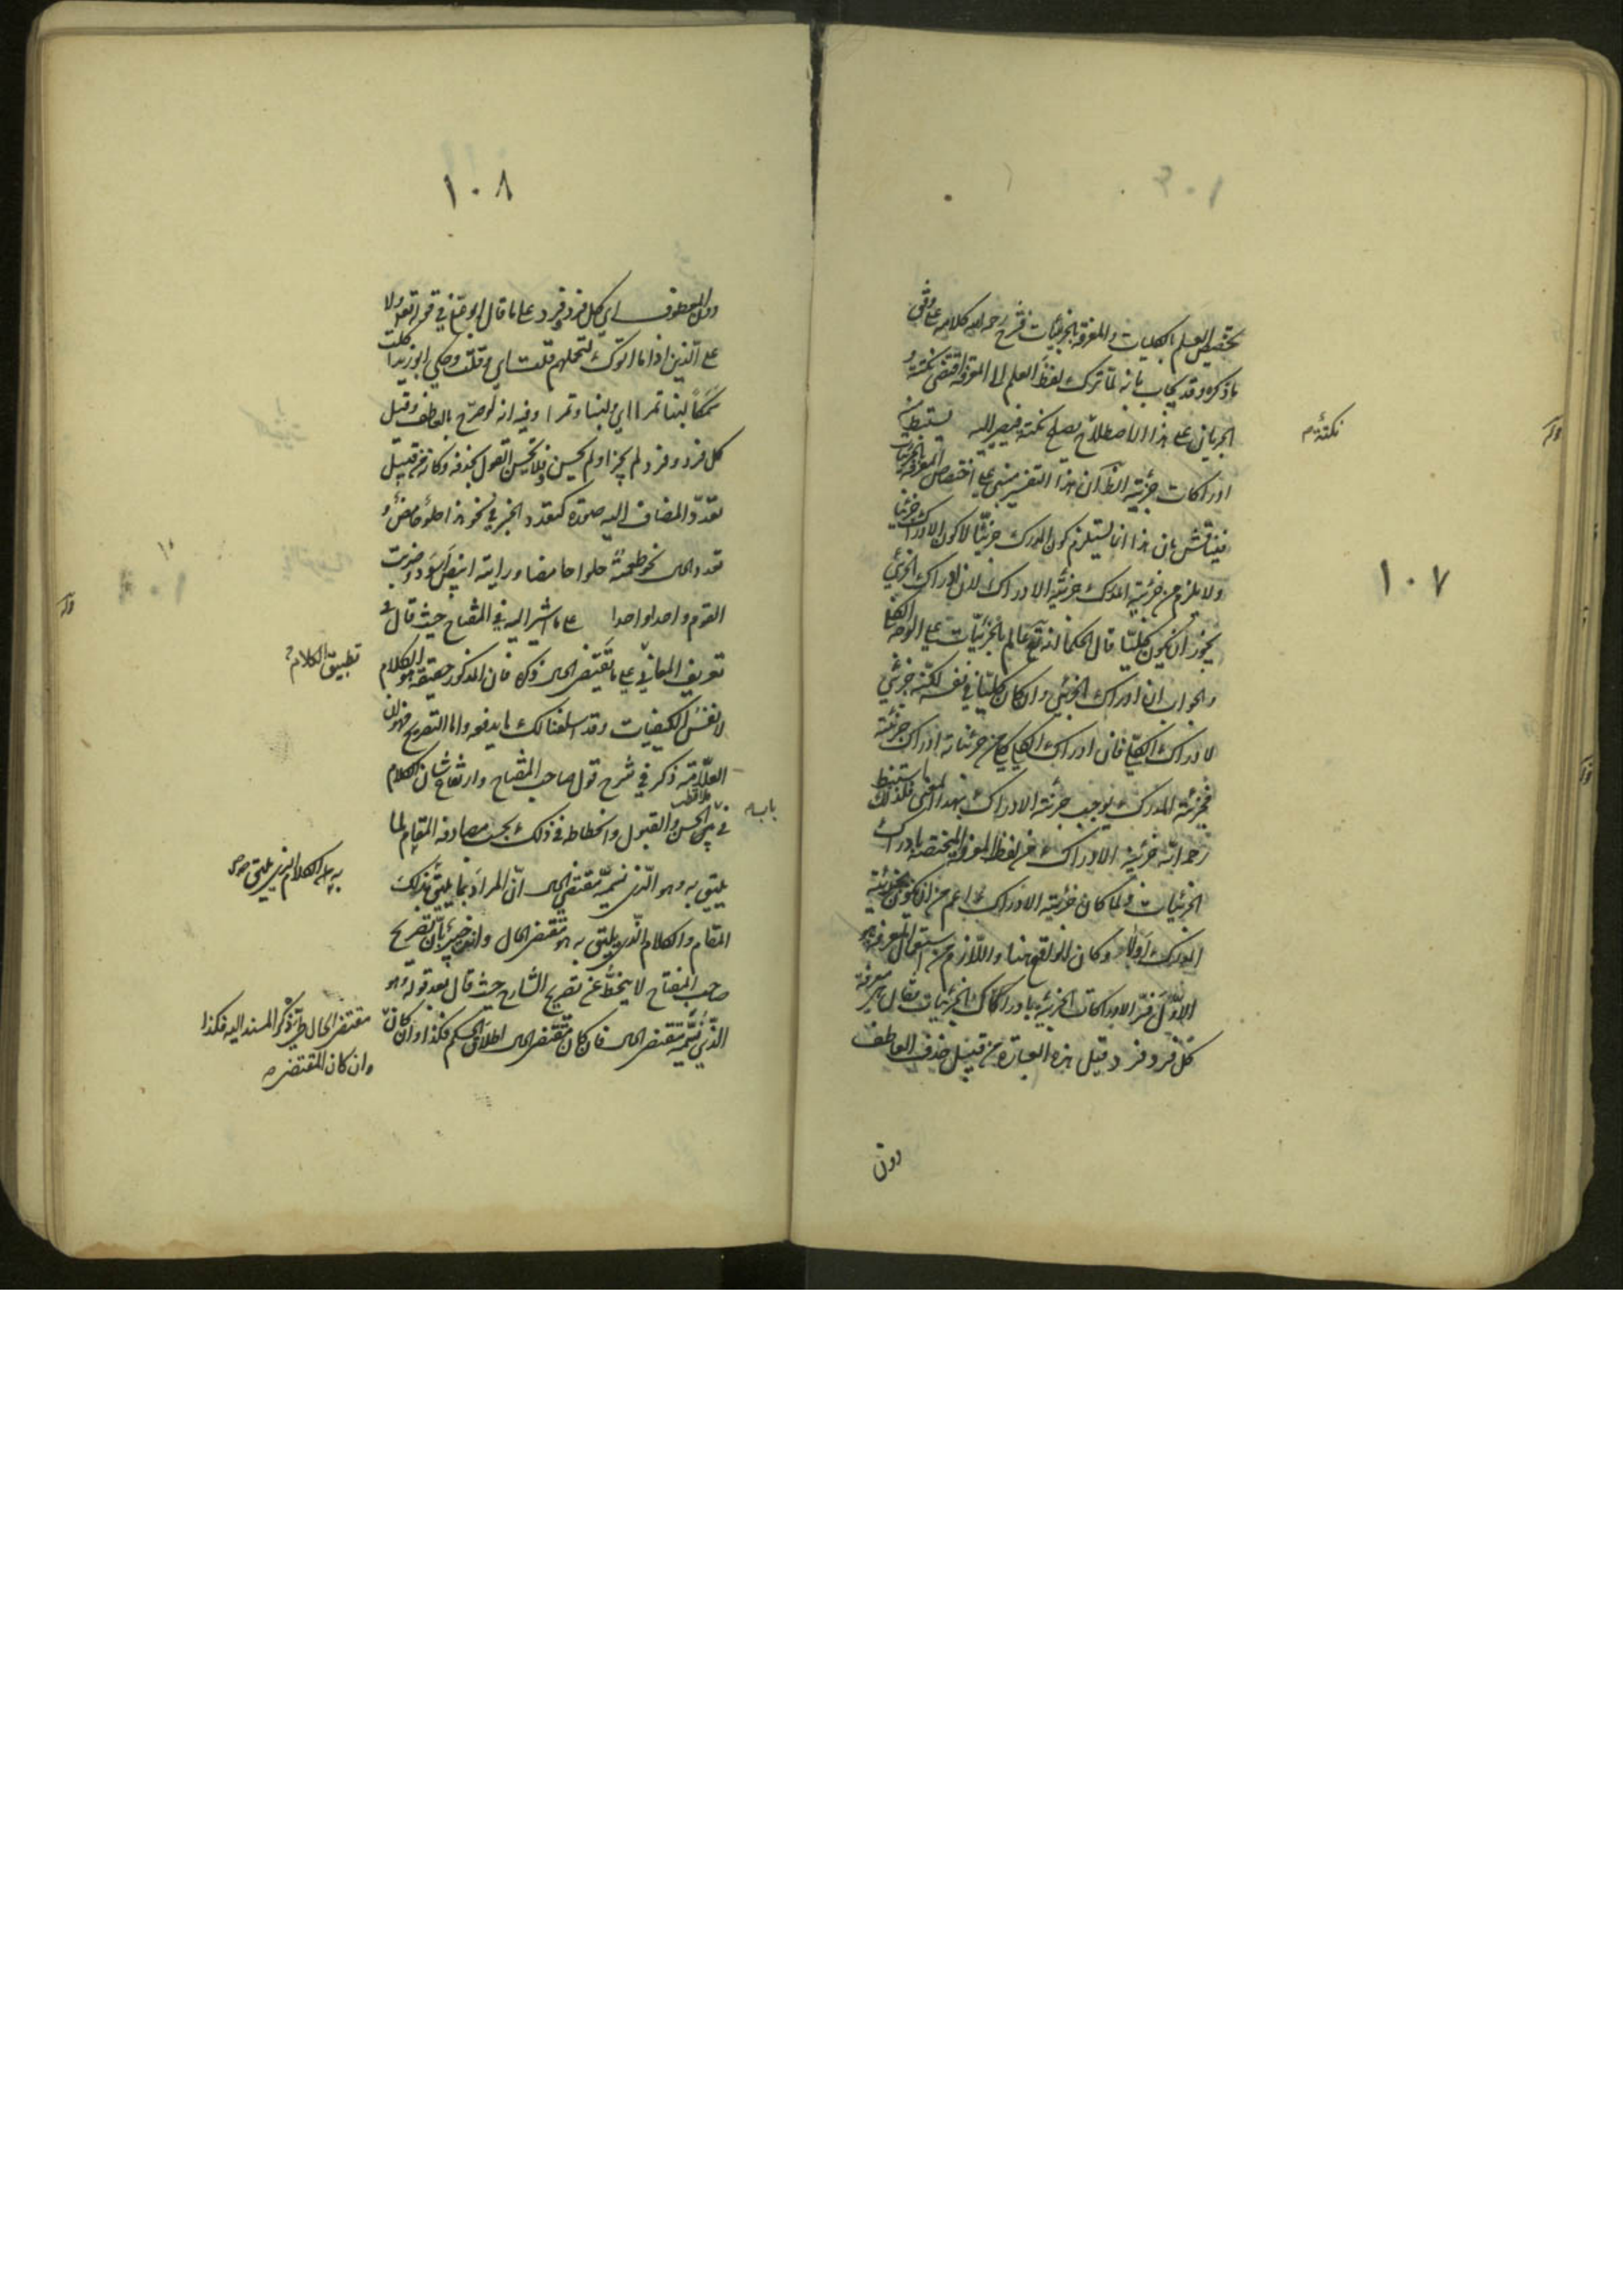 ١٠٧
تخصيص العلم بالكليات والمعرفة بالجزئيات فشرح رحمه الله كلامه على وفق
ما ذكره وقد يجاب بانه لما ترك لفظ العلم الى المعرفة اقتضى نكتة و
الجريان على هذا الاصطلاح يصلح نكتة فيصير اليه يستنبط منه
نكتة م
ادراكات جزئية الظ ان هذا التفسير مبني على اختصاص المعرفة بالجزئيات
فيناقش بان هذا انما يستلزم كون المدرك جزئيا لا كون الادراك جزئيا
ولا يلزم من جزئية المدرك جزئية الادراك لان ادراك الجزئي
يجوز ان يكون كليا قال الحكما انه تع عالم بالجزئيات على الوجه الكلي
والجواب ان ادراك الجزئي وان كان كليا في نفسه لكنه جزئي
لادراك الكلي فان ادراك الكلي كلي من جزئياته ادراك جزئية
فجزئية المدرك يوجب جزئية الادراك بهذا المعنى فلذلك استنبط
رحمه الله جزئية الادراك من لفظ المعرفة المختصة بادراك
الجزئيات ولما كان جزئية الادراك اعم من ان يكون بجزئية
المدرك اولا وكان الواقع هنا واللازم من استعمال المعرفة هو
الاول فسر الادراكات الجزئية بادراكات الجزئيات فقال هي معرفة
كل فرد فرد قيل هذه العبارة من قبيل حذف العاطف
دون
١٠٨
دون المعطوف اي كل فرد وفرد على ما قال ابو علي في قوله تعو ولا
على الذين اذا ما اتوك لتحملهم قلت اي وقلت وحكى ابو زيد اكلت
سمكا لبنا تمرا اي ولبنا وتمرا وفيه انه لو صرح بالعاطف وقيل
كل فرد وفرد لم يجز او لم يحسن فلا يحسن القول بحذفه وكانه من قبيل
تعدد المضاف اليه صورة كتعدد الخبر في نحو هذا حلو حامض و
تعدد الحال نحو طعمته حلوا حامضا ورايته ابيض اسود وضربت
القوم واحدا واحدا على ما اشير اليه في المفتاح حيث قال في
تعريف المعاني على ما تقتضي الحال ذكره فان المذكور حقيقة هو الكلام
تطبيق الكلام
لا نفس الكيفيات وقد اسلفنا لك ما يدفعه واما التصريح فهو ان
العلامة ذكر في شرح قول صاحب المفتاح وارتفاع شان الكلام
في باب الحسن والقبول وانحطاطه في ذلك بحسب مصادفة المقام لما
يليق به وهو الذي نسميه مقتضى الحال ان المراد بما يليق بذلك
به هو الكلام الذي يليق
المقام والكلام الذي يليق به هو مقتضى الحال وانت خبير بان تصريح
صاحب المفتاح لا ينحط عن تصريح الشارح حيث قال بعد قوله وهو
الذي نسميه مقتضى الحال فان كان مقتضى الحال اطلاق الحكم فكذا وان كان
مقتضى الحال طي ذكر المسند اليه فكذا
وان كان المقتضى